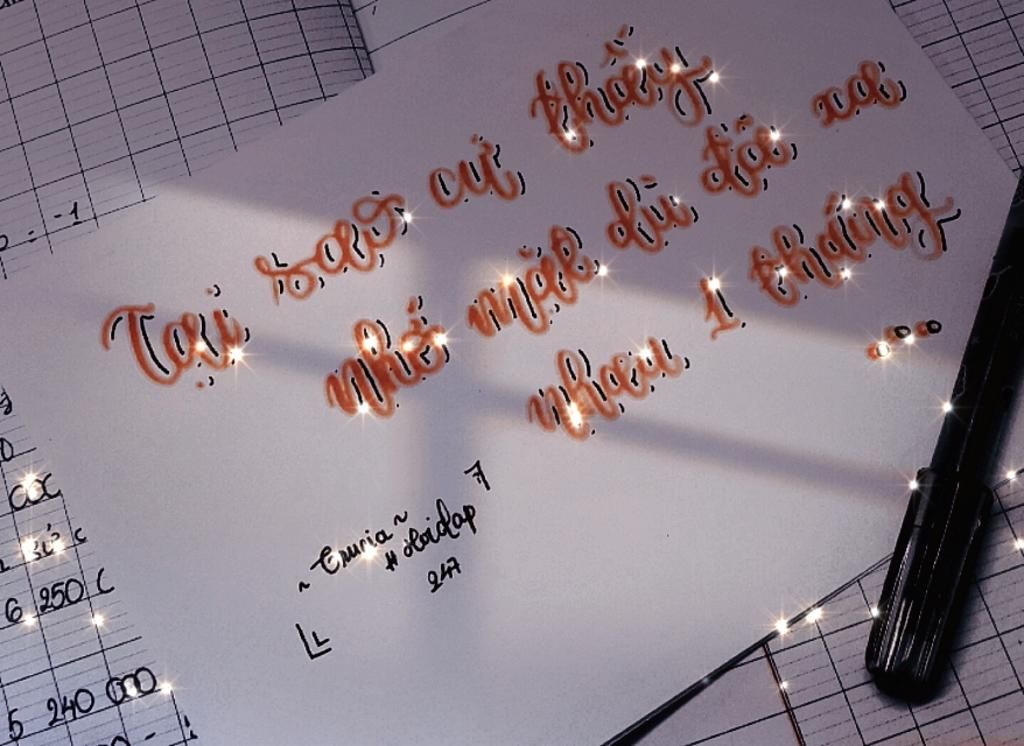 Tại sao cứ thấy
nhớ mặc dù đã xa
nhau 1 tháng
...
#Hoidap
247
-1
6 250 C
5 240 000